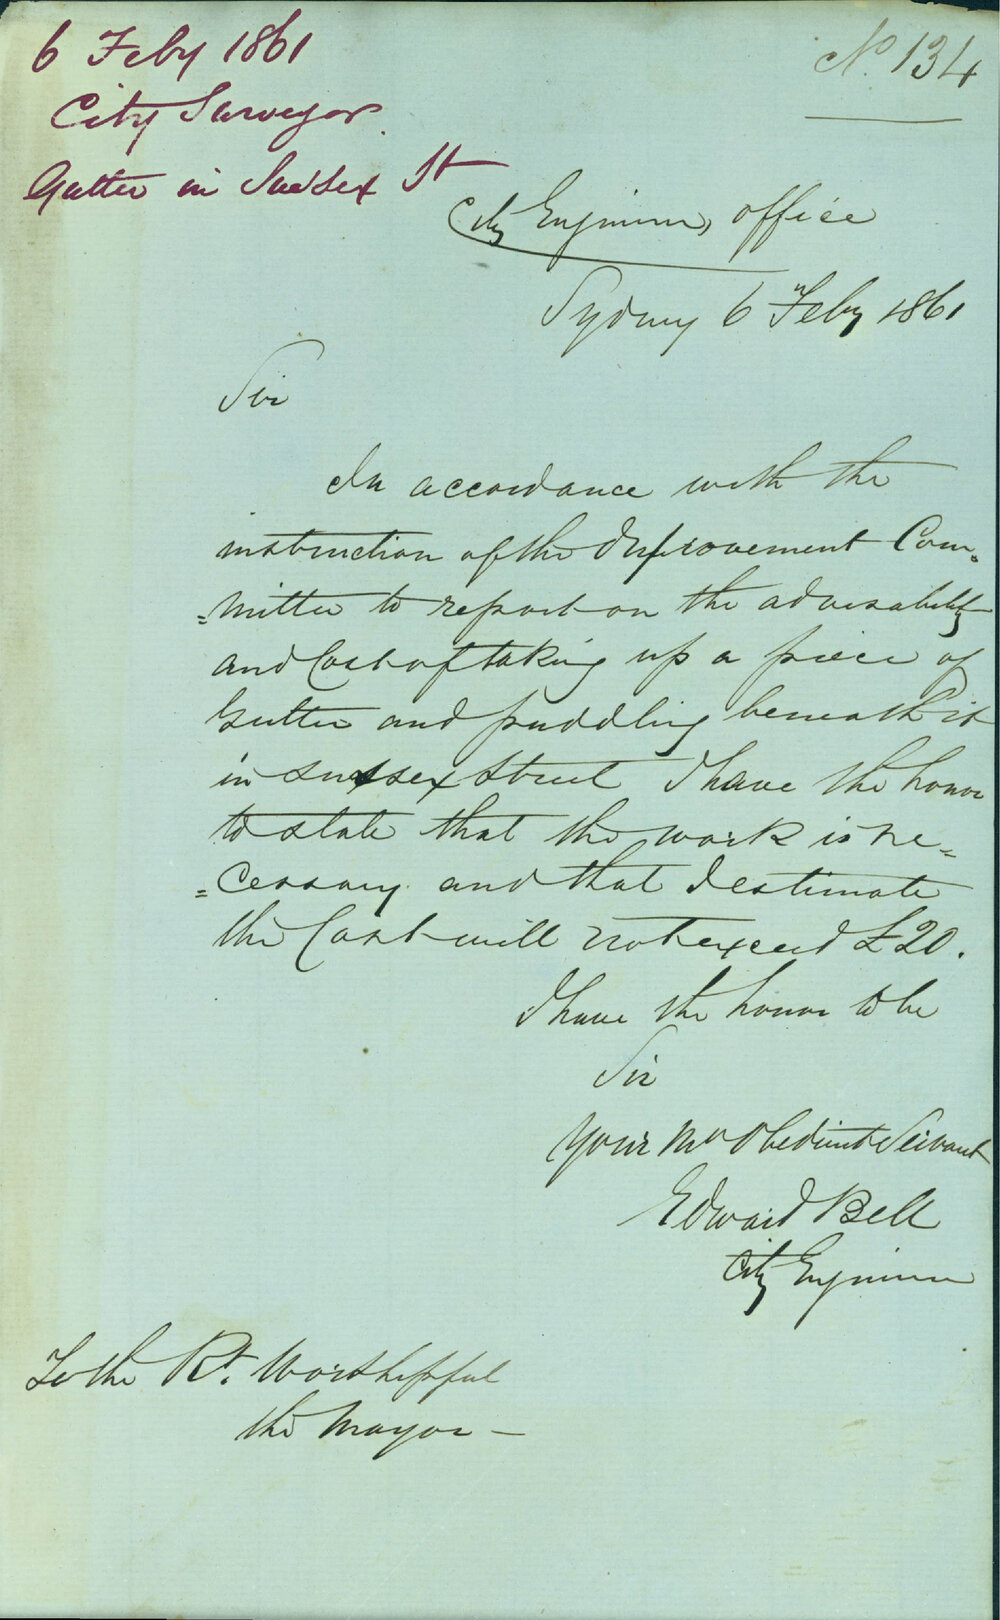 6 Feby 1861
City Surveyor
Gutter in Sussex St
No. 134
City Engineers office
Sydney 6 Feby 1861
Sir
In accordance with the
instruction of the Improvement Com=
=mittee to report on the advisability
and Cost of taking up a piece of
Gutter and puddling beneath it
in Sussex Street I have the honor
to state that the work is ne=
=cessary and that I estimate
the Cost will not exceed £20.
I have the honor to be
Sir
Your Mo Obedient Servant
Edward Bell
City Engineer
To the Rt. Worshipful
the Mayor —